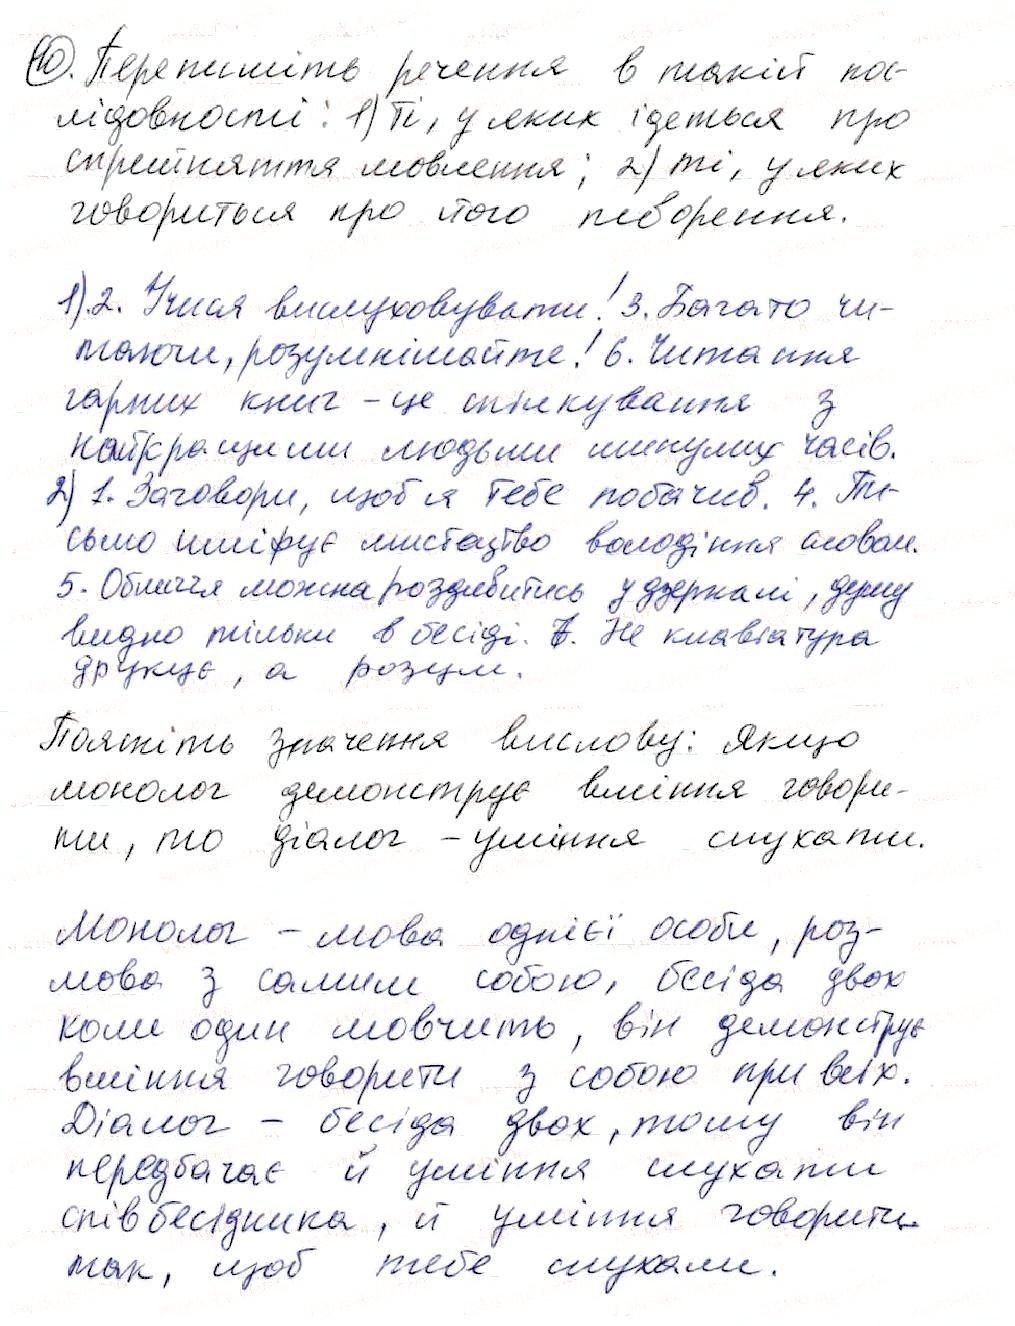 40. Перепишіть речення в такій пос-
лідовності: 1) ті, у яких ідеться про
сприйняття мовлення; 2) ті, у яких
говориться про його творення.
1). 2. Учися вислуховувати! 3. Багато чи-
таючи, розумнішайте! 6. Читання
гарних книг – це спілкування з
найкращими людьми минулих часів.
2) 1. Заговори, щоб я тебе побачив. 4. Пи-
сьмо шліфує мистецтво володіння словом.
5. Обличчя можна роздивитись у дзеркалі, душу
видно тільки в бесіді. 7. Не клавіатура
друкує, а розум.
Поясніть значення вислову: Якщо
монолог демонструє вміння говори-
ти, то діалог – уміння слухати.
Монолог – мова однієї особи, роз-
мова з самим собою, бесіда двох
коли один мовчить, він демонструє
вміння говорити з собою при всіх.
Діалог – бесіда двох, тому він
передбачає й уміння слухати
співбесідника, й уміння говорити
так, щоб тебе слухали.